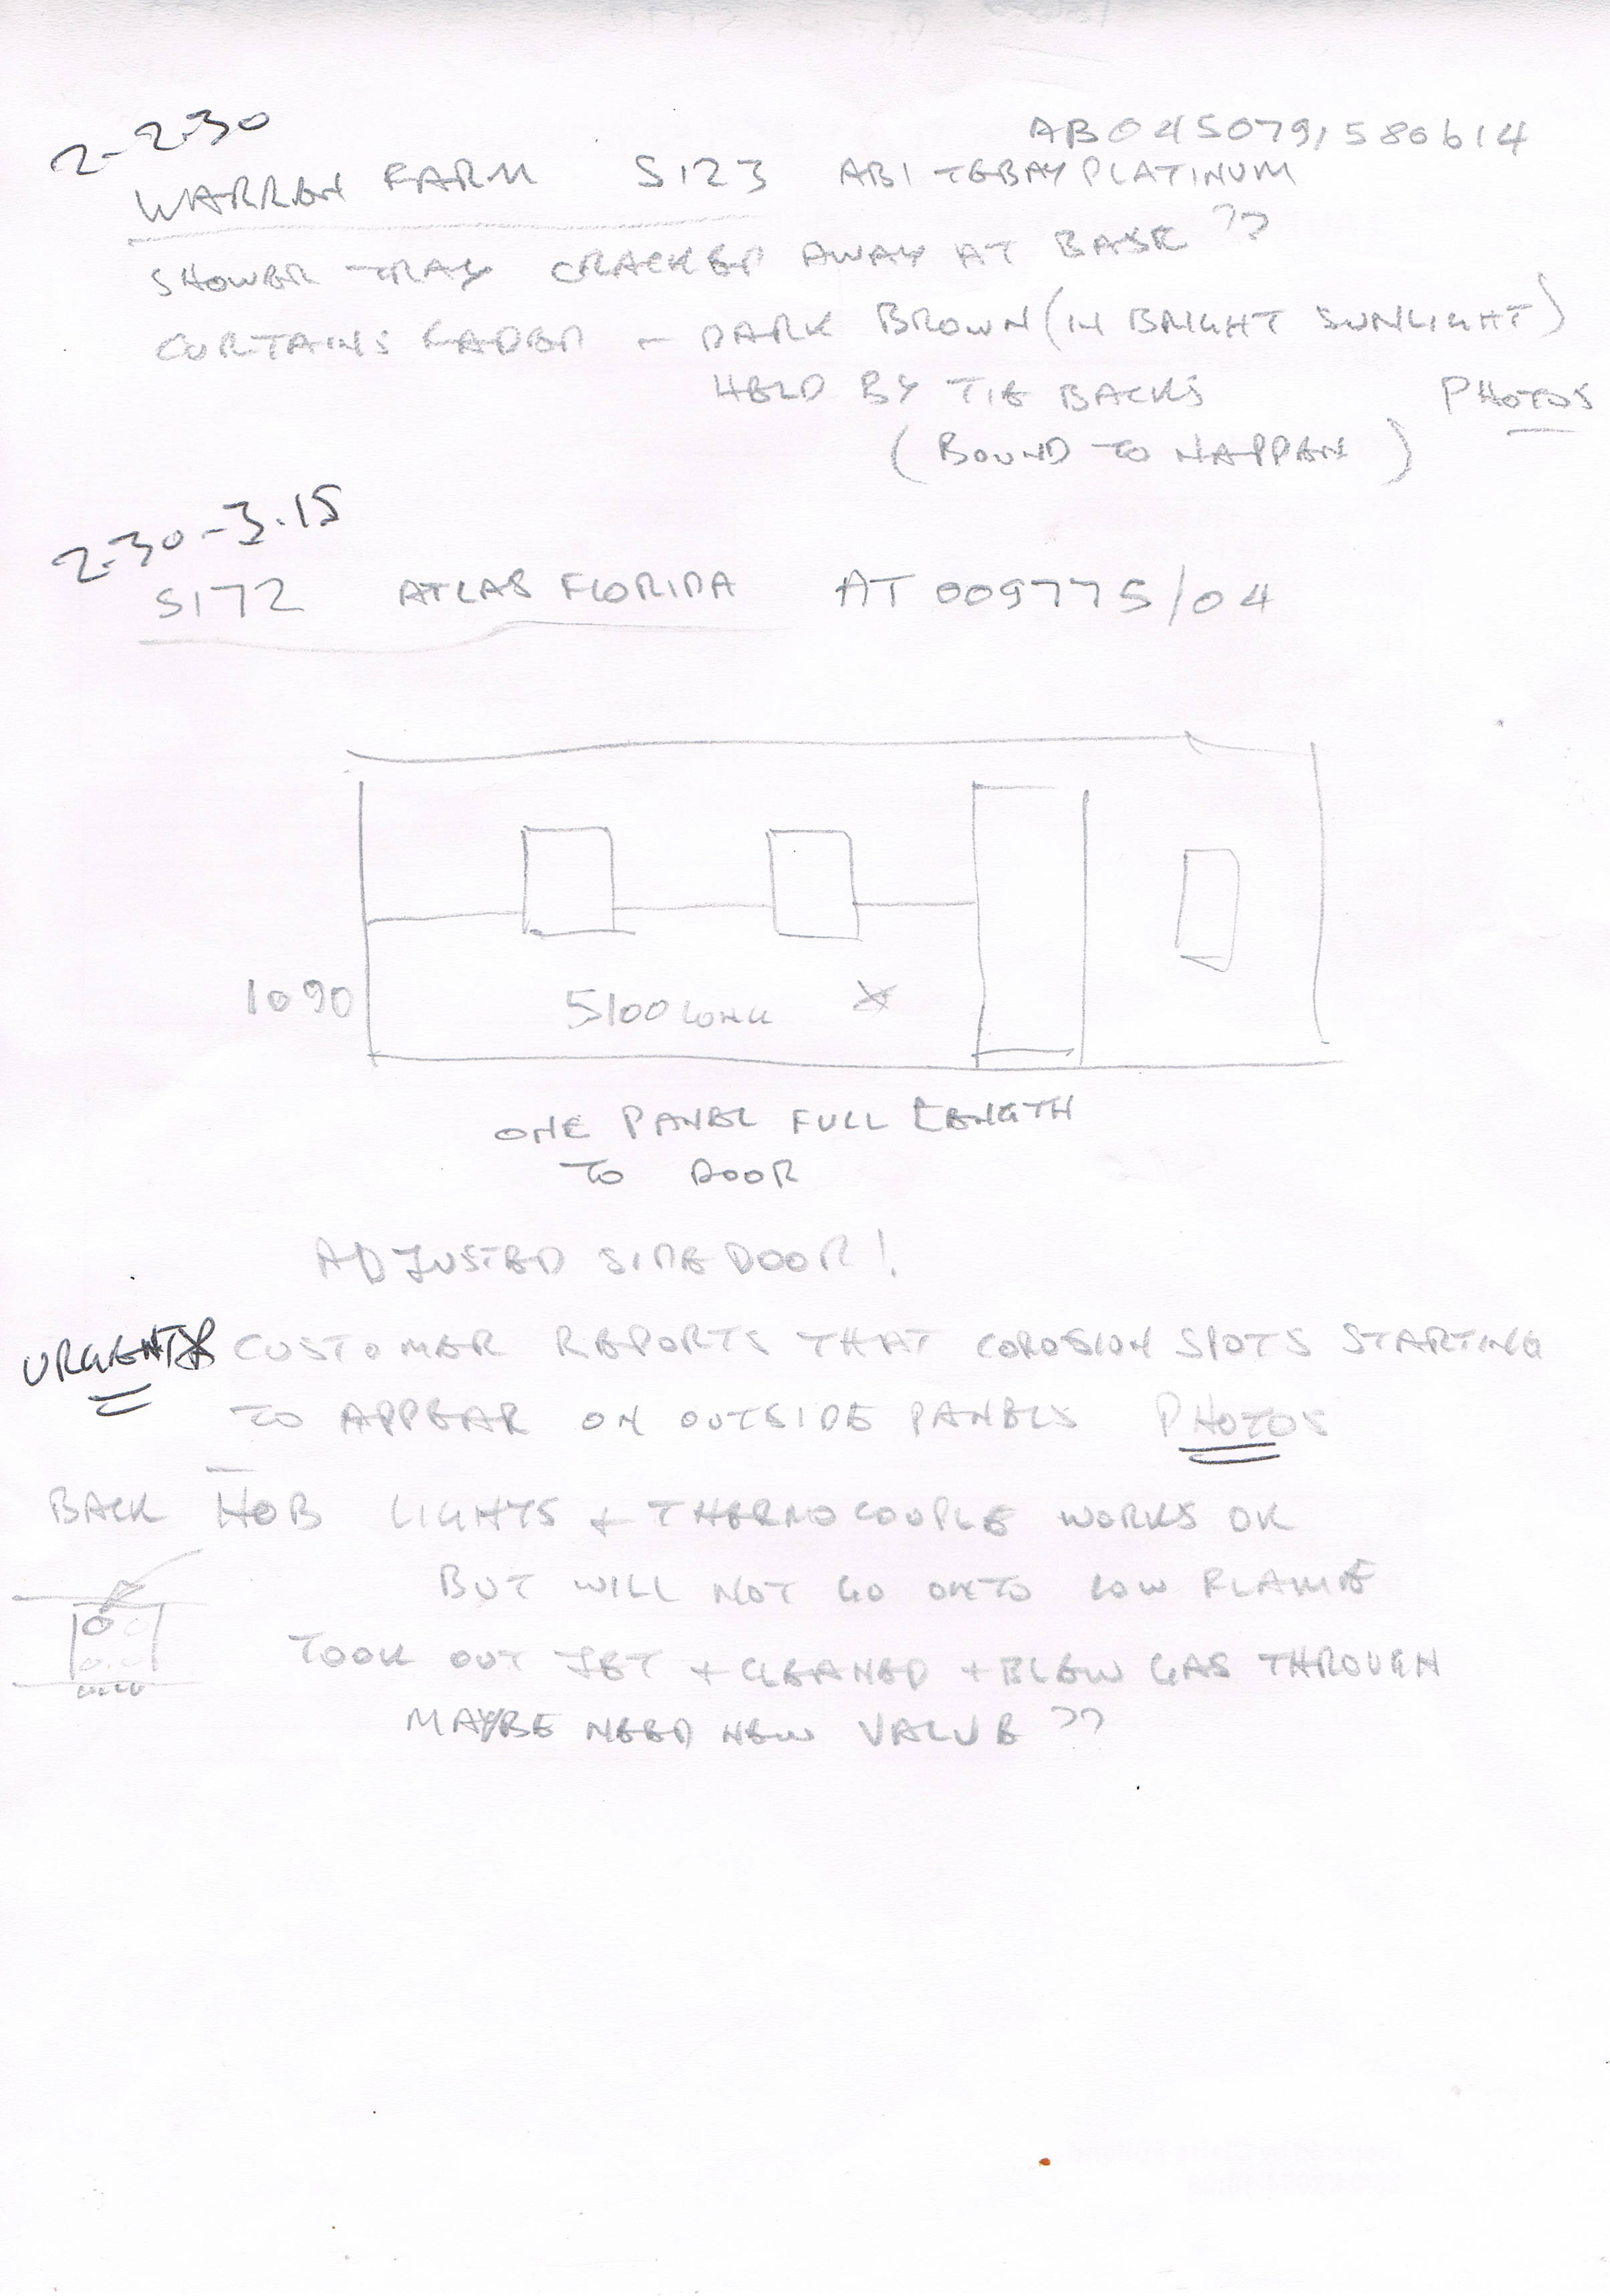 2-2.30
AB045079/580614
WARREN FARM S123 ABI TEBAY PLATINUM
SHOWER TRAY CRACKED AWAY AT BASE ??
CURTAINS FADED - DARK BROWN (IN BRIGHT SUNLIGHT)
HELD BY TIE BACKS PHOTOS
(BOUND TO HAPPEN)
2.30-3.15
S172 ATLAS FLORIDA AT009775/04
1090
5100 LONG
ONE PANEL FULL LENGTH
TO DOOR
ADJUSTED SIDE DOOR!
URGENT CUSTOMER REPORTS THAT COROSION SPOTS STARTING
TO APPEAR ON OUTSIDE PANELS PHOTOS
BACK HOB LIGHTS + THERMOCOUPLE WORKS OK
BUT WILL NOT GO ONTO LOW FLAME
TOOK OUT JET + CLEANED + BLEW GAS THROUGH
MAYBE NEED NEW VALVE ??